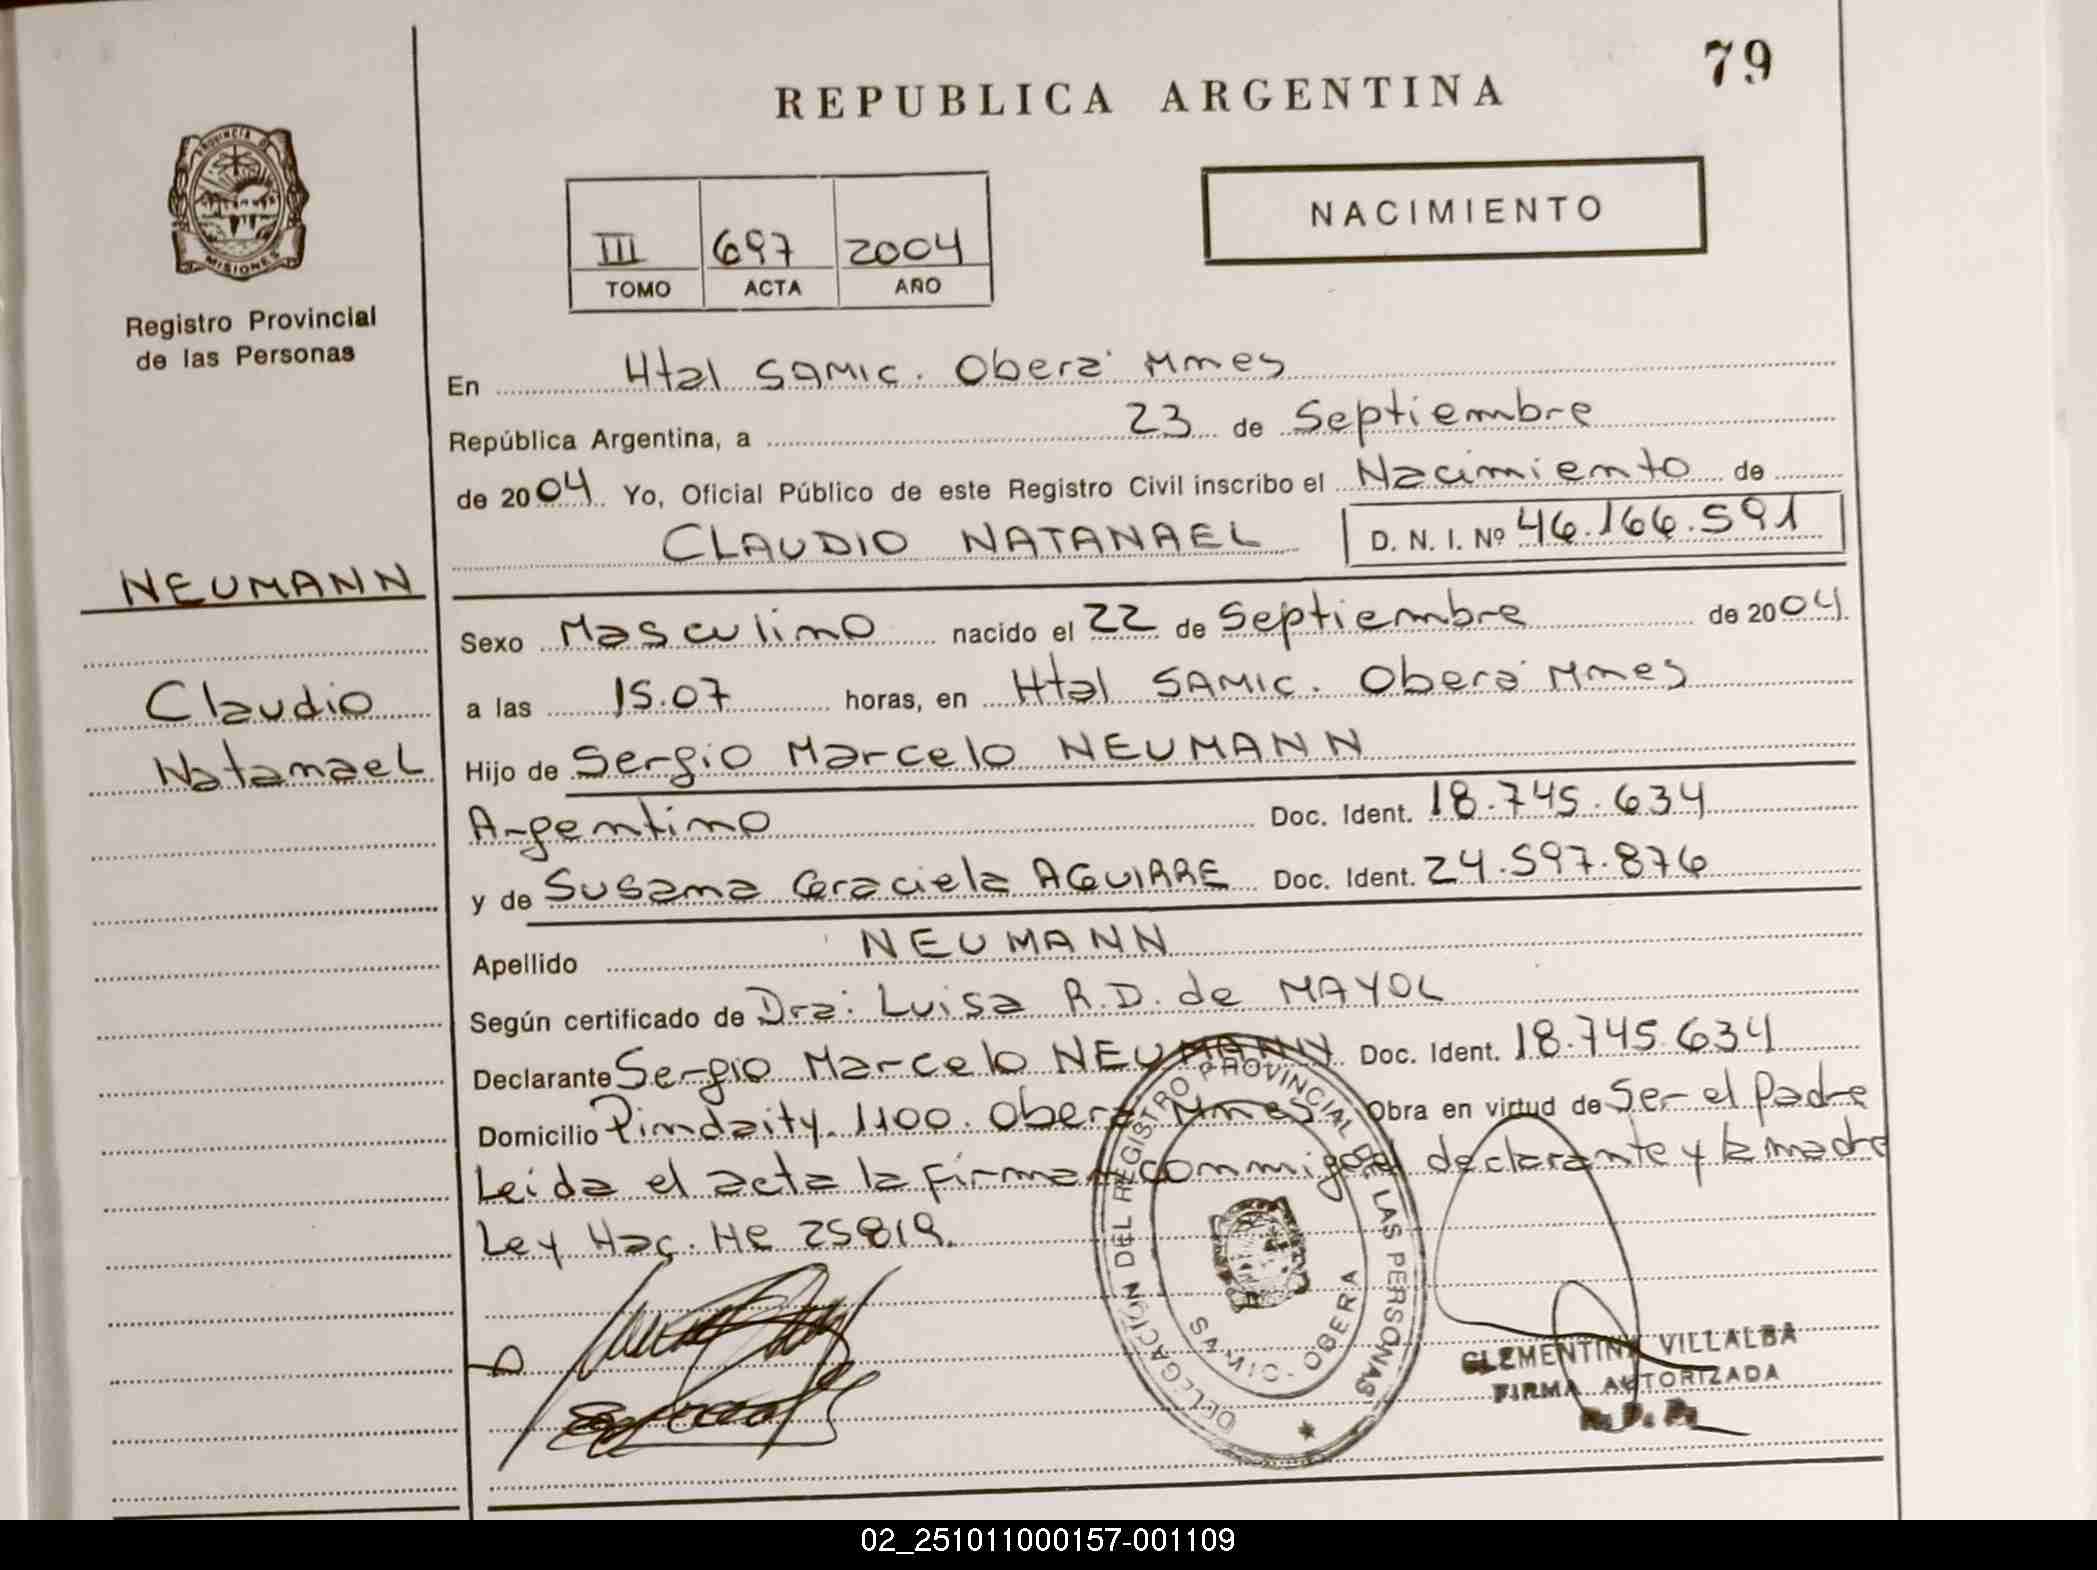 79
REPUBLICA ARGENTINA
PROVINCIA DE
MISIONES
Registro Provincial
de las Personas
III 697 2004
TOMO ACTA AÑO
NACIMIENTO
En Htal SAMIC. Oberá Mnes
República Argentina, a 23 de Septiembre
de 2004 Yo, Oficial Público de este Registro Civil inscribo el Nacimiento de
CLAUDIO NATANAEL D. N. I. Nº 46.166.591
NEUMANN
Claudio
Natanael
Sexo Masculino nacido el 22 de Septiembre de 2004.
a las 15.07 horas, en Htal SAMIC. Oberá Mnes
Hijo de Sergio Marcelo NEUMANN
Argentino Doc. Ident. 18.745.634
y de Susana Graciela AGUIRRE Doc. Ident. 24.597.876
Apellido NEUMANN
Según certificado de Dra: Luisa R.D. de MAYOL
Declarante Sergio Marcelo NEUMANN Doc. Ident. 18.745.634
Domicilio Pindaity. 1100. Oberá Mnes Obra en virtud de Ser el Padre
Leida el acta la firman conmigo el declarante y la madre
Ley Nac. 25819.
DELEGACIÓN DEL REGISTRO PROVINCIAL DE LAS PERSONAS
OBERA
CLEMENTINA VILLALBA
FIRMA AUTORIZADA
R. P. P.
02_251011000157-001109